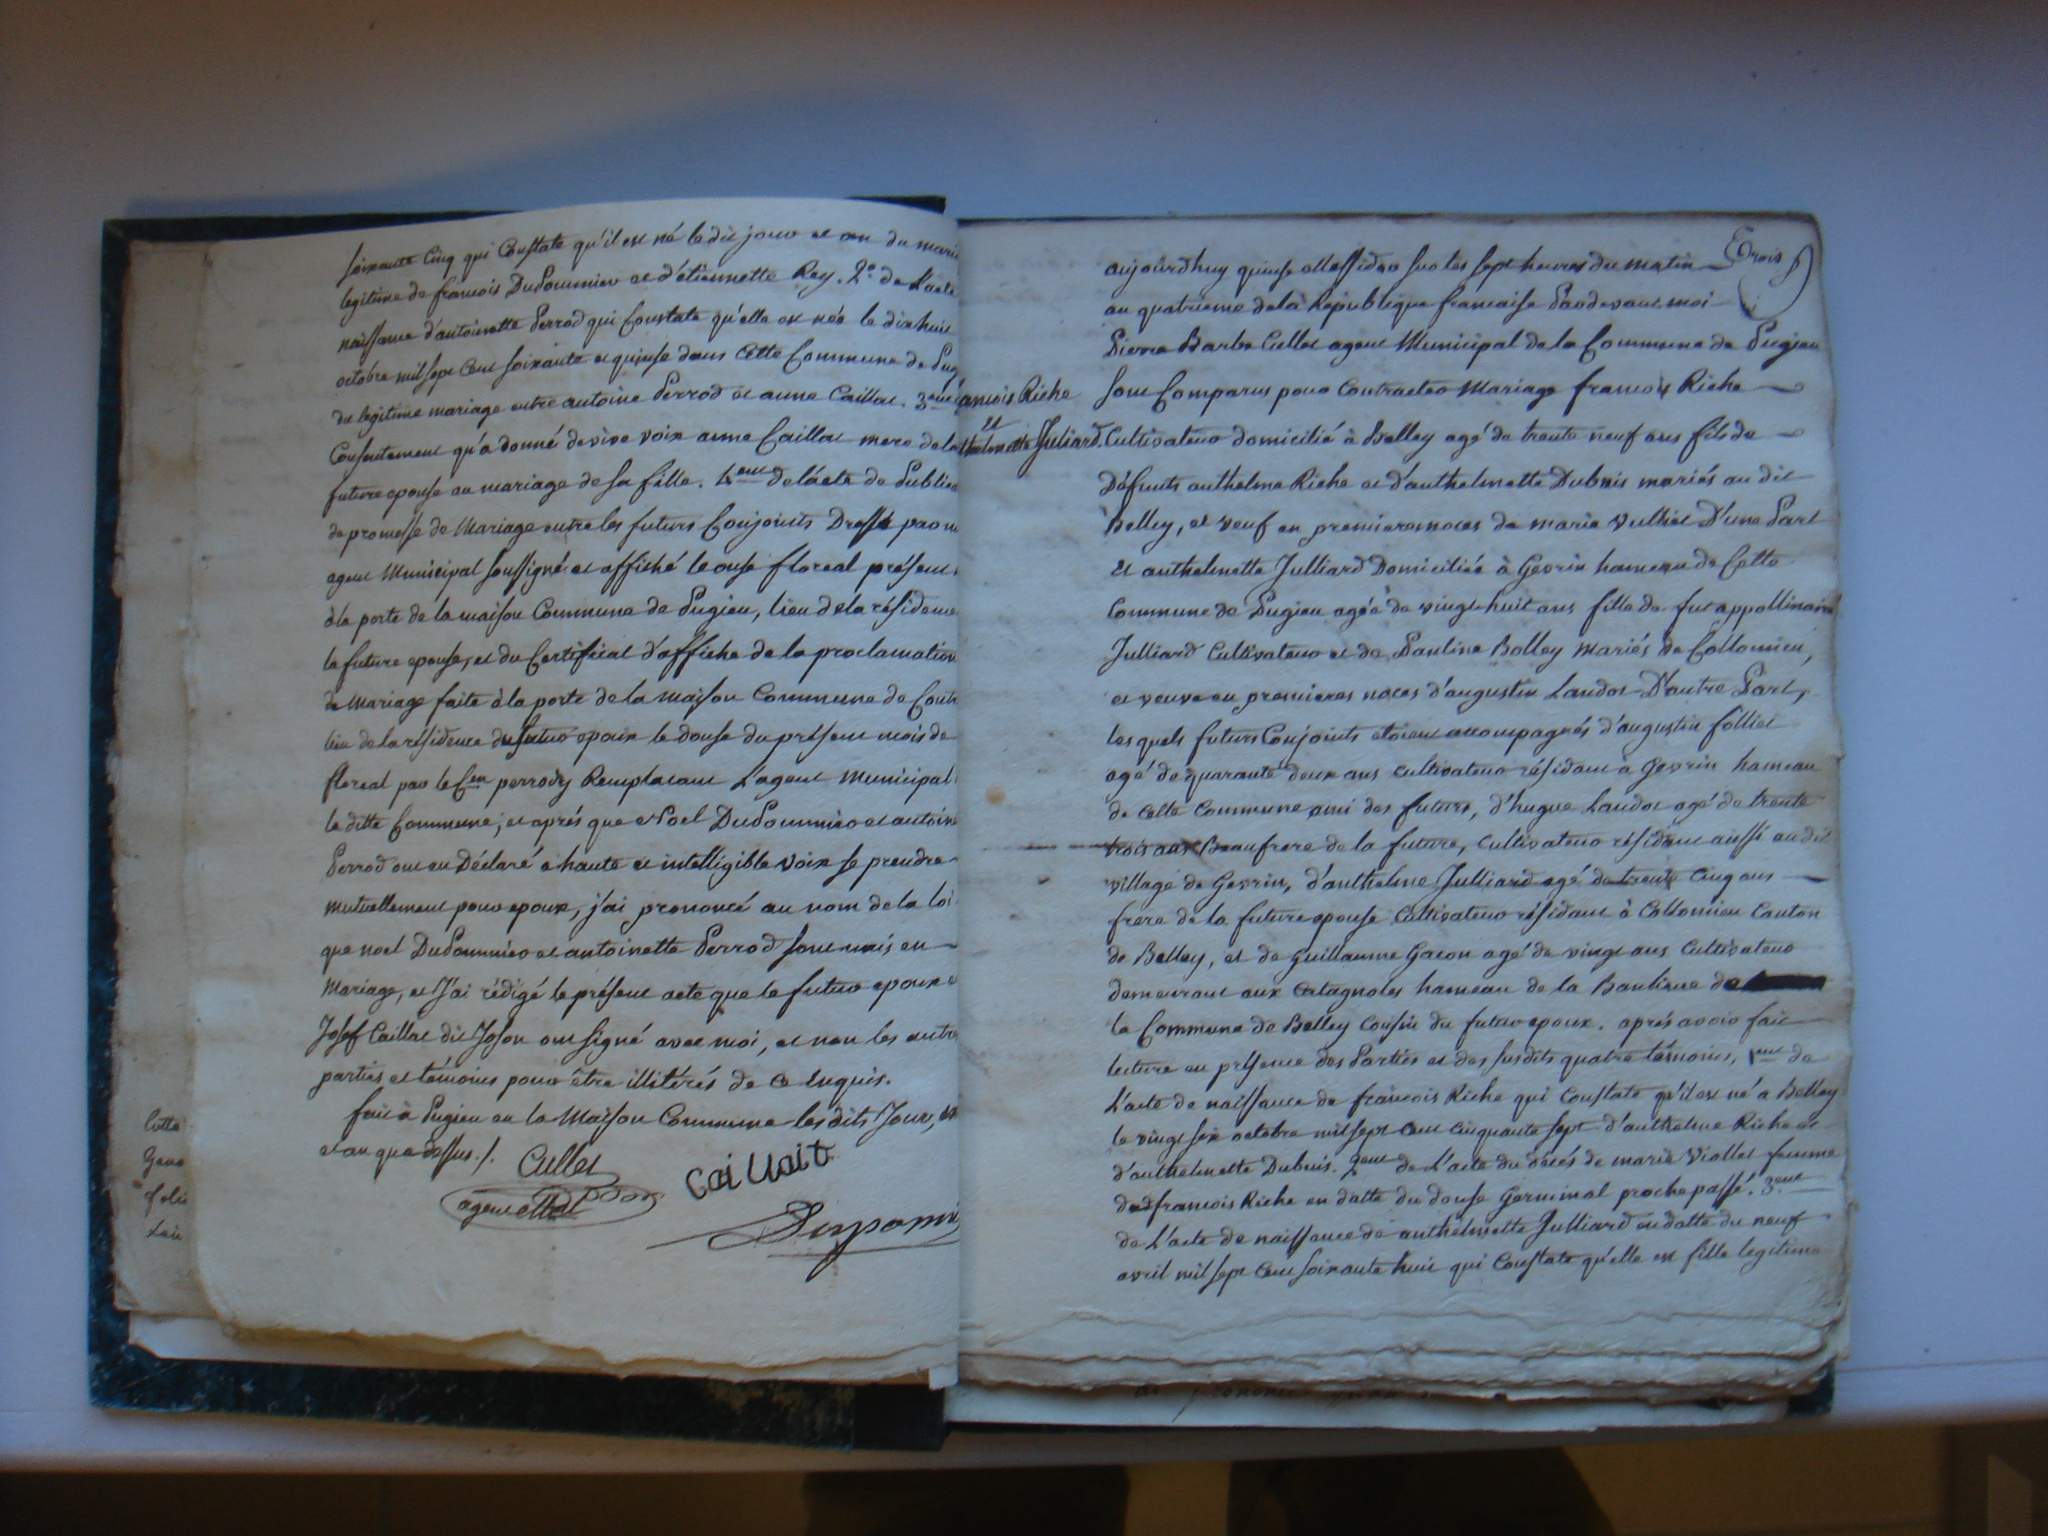 soixante Cinq qui Constate qu'il est né le dit jour et an du mari
legitime de francois DuPommier et d'étiennette Rey. 2º de L'acte
naissance d'antoinette Perrod qui Constate qu'elle est née le dix huit
octobre mil sept Cent soixante et quinse dans Cette Commune de Pug
du legitime mariage entre antoine Perrod et anne Caillat. 3eme
Consentement qu'a donné de vive voix anne Caillat mere de la
future epouse au mariage de sa fille. 4eme de l'acte de Publica
de promesse de Mariage entre les futurs Conjoints Dressé par m
agent Municipal soussigné et affiché le onse floreal présent
à la porte de la maison Commune de Pugieu, lieu de la résidence
la future epouse, et du Certificat d'affiche de la proclamation
de Mariage faite à la porte de la Maison Commune de Cont
lieu de la résidence du futur epoux le douse du présent mois de
floreal par le Cen perrody Remplacant L'agent Municipal
la ditte Commune; et après que Noel DuPommier et antoine
Perrod ont eu Déclaré a haute et intelligible voix se prendre
mutuellement pour epoux, j'ai prononcé au nom de la loi
que noel DuPommier et antoinette Perrod sont unis en
Mariage, et J'ai rédigé le présent acte que le futur epoux e
Josef Caillat dit Joson ont signé avec moi, et non les autre
parties et témoins pour être illitérés de ce enquis.
fait à Pugieu en la Maison Commune les dits Jour,
et an que dessus ./.
Cullet
agent
Caillait
Duponni
Cotte
Trois
aujourdhuy quinse Messidor sur les sept heures du matin
an quatrieme de la Republique francaise Pardevant moi
Pierre Barbe Cullet agent Municipal de la Commune de Pugieu
sont Comparus pour Contracter Mariage francois Riche
ancois Riche
et
thelmette Julliard.
Cultivateur domicilié à Belley agé de trente neuf ans fils de
Défunts anthelme Riche et d'anthelmette Dubuis mariés au dit
Belley, et veuf en premieres noces de marie Vulliet D'une Part
Et anthelmette Julliard Domiciliée à Gevrin hameau de Cette
Commune de Pugieu agée de vingt huit ans fille de feu appollinaire
Julliard Cultivateur et de Pauline Bolley Mariés de Collomieu,
et veuve en premieres noces d'augustin Landot D'autre Part,
lesquels futurs Conjoints etoient accompagnés d'augustin folliet
agé de quarante deux ans cultivateur résidant à Gevrin hameau
de cette commune ami des futurs, d'hugue Landot agé de trente
trois ans Beaufrere de la future, cultivateur résidant aussi au dit
village de Gevrin, d'anthelme Julliard agé de trente Cinq ans
frere de la future epouse Cultivateur résidant à Collomieu Canton
de Belley, et de Guillaume Gacon agé de vingt ans Cultivateur
demeurant aux Catagnoles hameau de la Banlieue de
la Commune de Belley Cousin du futur epoux. après avoir fait
lecture en présence des Parties et des susdits quatre témoins, 1ent de
L'acte de naissance de francois Riche qui Constate qu'il est né a Belley
le vingt six octobre mil sept cent cinquante sept d'anthelme Riche et
d'anthelmette Dubuis. 2ent de L'acte du décés de marie Viollet femme
dud francois Riche en datte du douse Germinal proche passé. 3ent
de L'acte de naissance de anthelmette Julliard en datte du neuf
avril mil sept Cent soixante huit qui Constate qu'elle est fille legitime